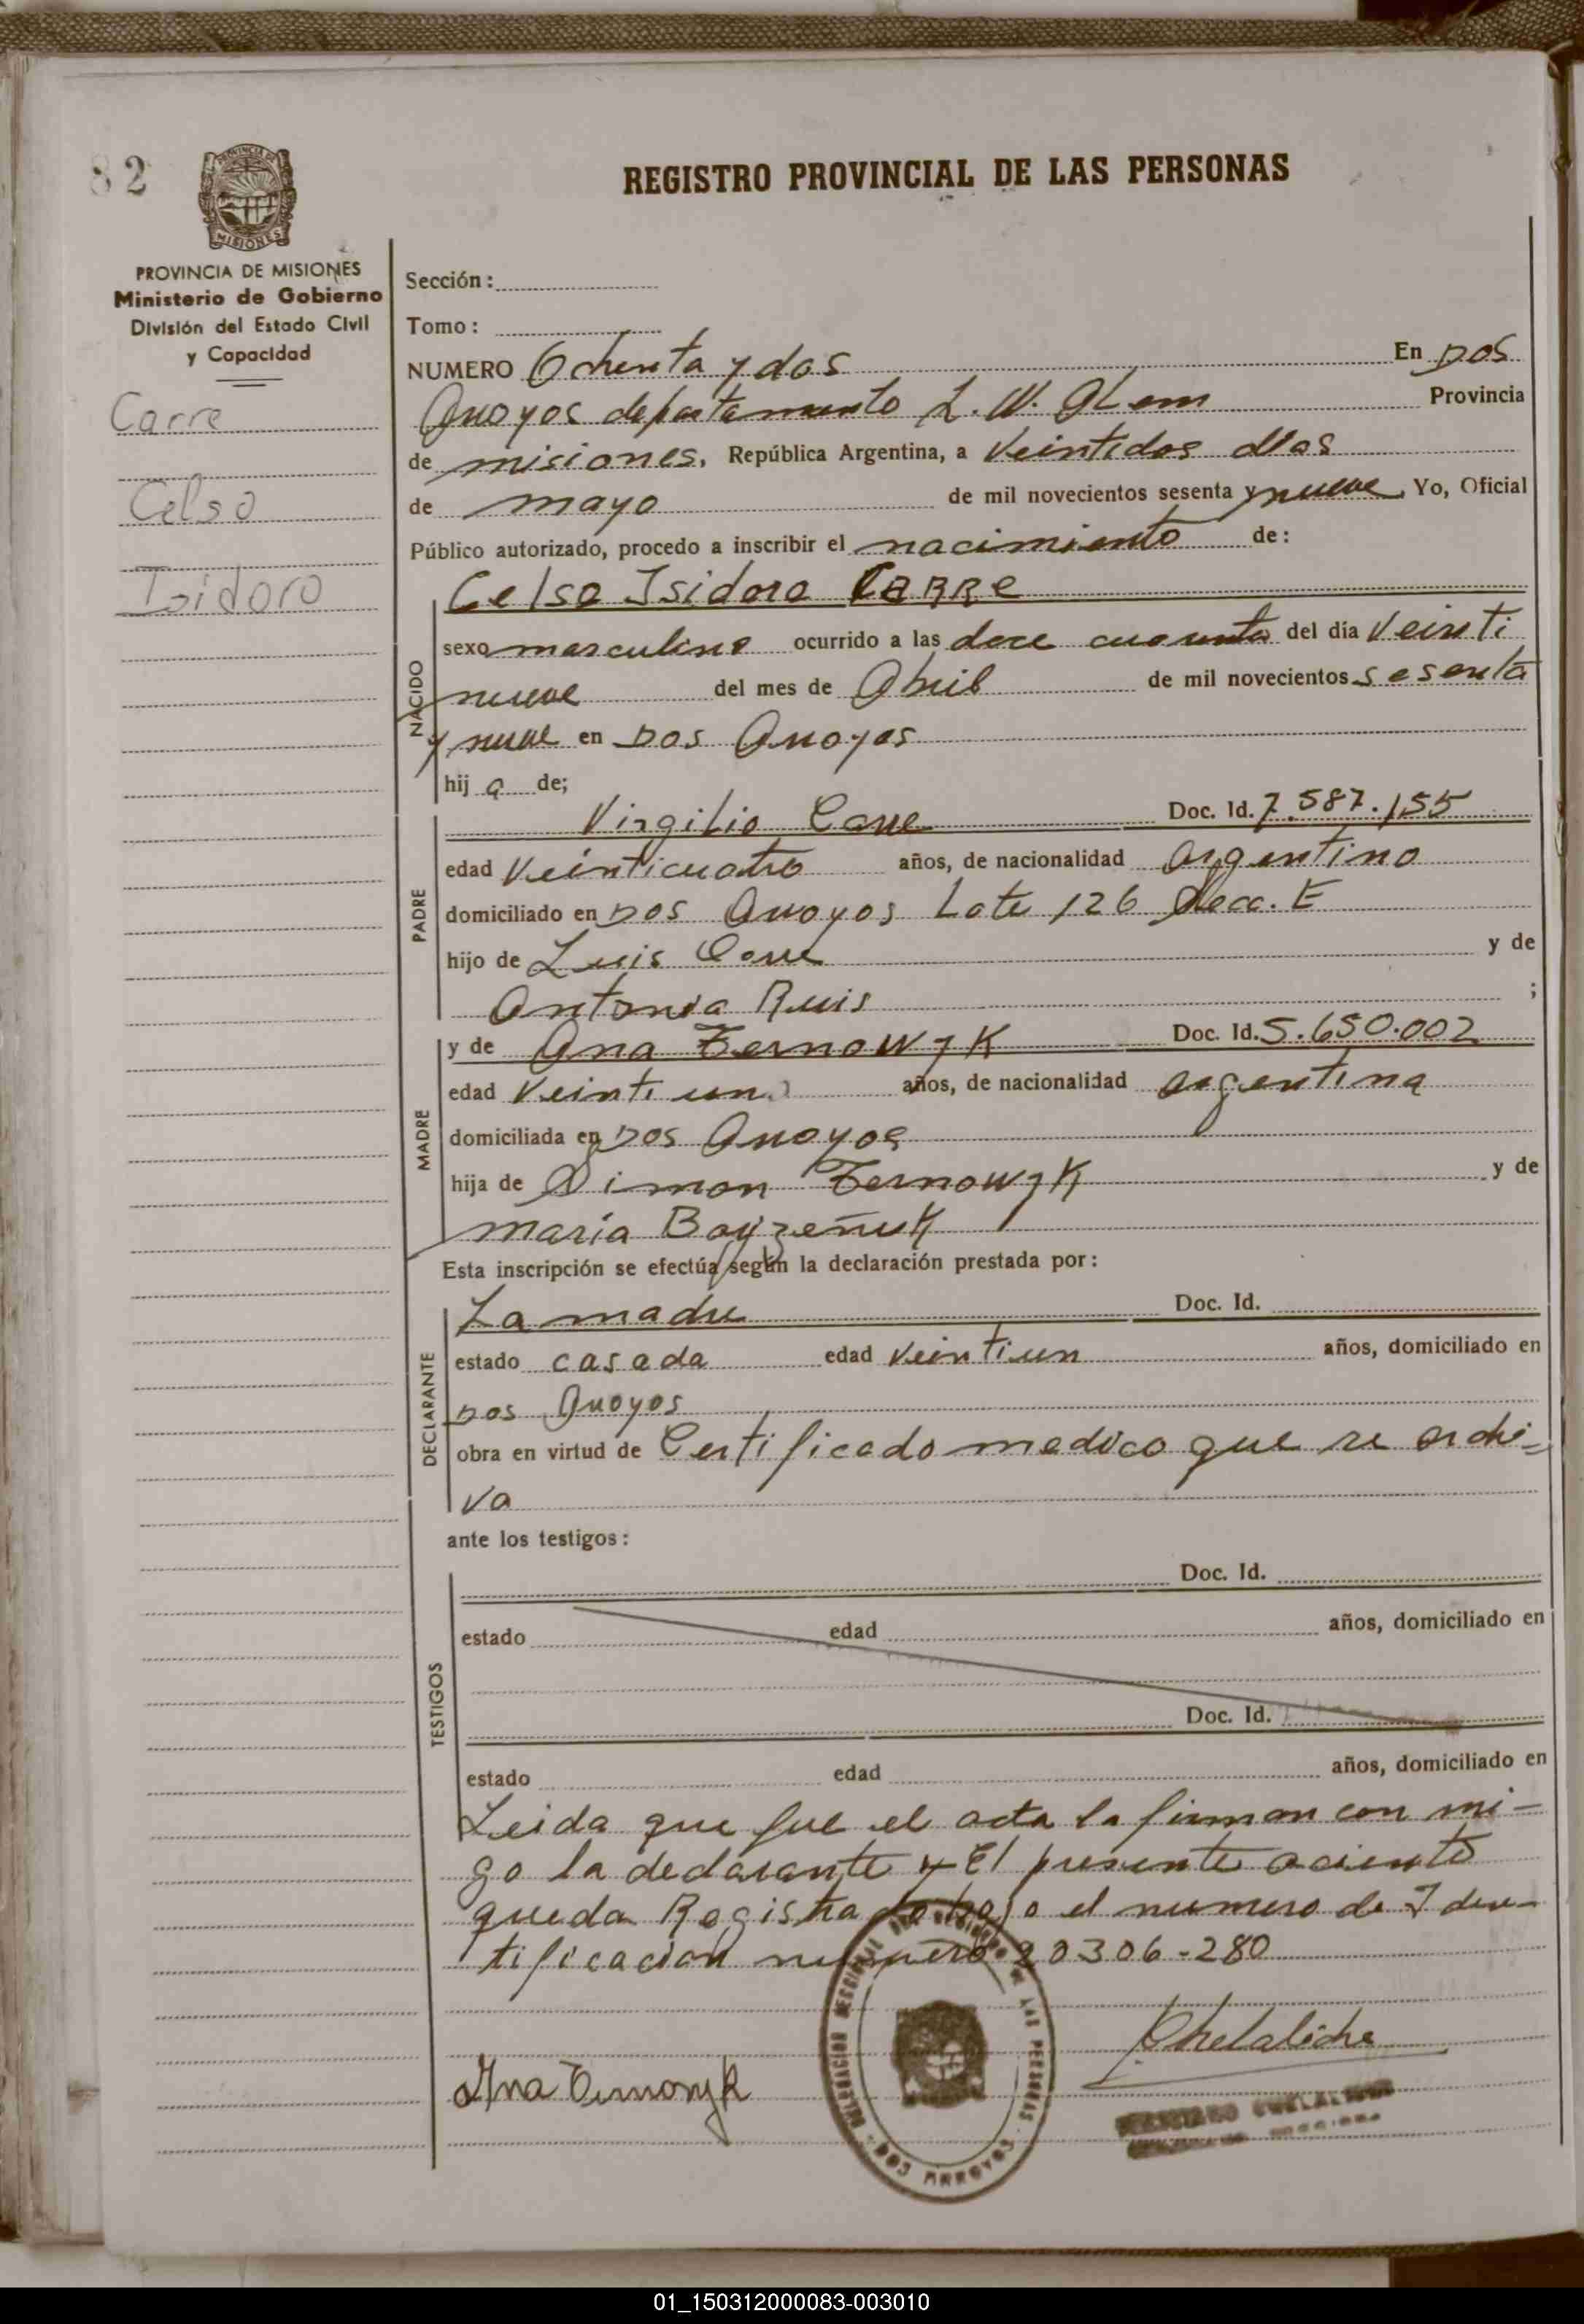 82
REGISTRO PROVINCIAL DE LAS PERSONAS
PROVINCIA DE
MISIONES
PROVINCIA DE MISIONES
Ministerio de Gobierno
División del Estado Civil
y Capacidad
Carre
Celso
Isidoro
Sección:
Tomo:
NUMERO Ochenta y dos En Dos
Arroyos departamento L. N. Alem Provincia
de misiones, República Argentina, a Veintidos dias
de mayo de mil novecientos sesenta y nueve, Yo, Oficial
Público autorizado, procedo a inscribir el nacimiento de:
NACIDO
Celso Isidoro CARRe
sexo masculino ocurrido a las doce cuarenta del día Veinti
nueve del mes de Abril de mil novecientos sesenta
y nueve en Dos Arroyos
hij o de;
PADRE
Virgilio Carre Doc. Id. 7.587.155
edad Veinticuatro años, de nacionalidad argentino
domiciliado en Dos Arroyos Lote 126 Secc. E
hijo de Luis Carre y de
Antonia Ruis ;
MADRE
y de Ana Ternowyk Doc. Id. 5.650.002
edad Veintiun años, de nacionalidad argentina
domiciliada en Dos Arroyos
hija de Simon Ternowyk y de
maria
Esta inscripción se efectúa según la declaración prestada por:
DECLARANTE
La madre Doc. Id.
estado casada edad Veintiun años, domiciliado en
Dos Arroyos
obra en virtud de Certificado medico que se archi=
va
ante los testigos:
TESTIGOS
Doc. Id.
estado edad años, domiciliado en
Doc. Id.
estado edad años, domiciliado en
Leida que fue el acta la firman con mi-
go la declarante y El presente aciento
queda Registrado bajo el numero de Iden-
tificacion numero 20306-280
Ana Ternowyk
Chelaliche
DELEGACION SECCIONAL DEL REGISTRO DE LAS PERSONAS
DOS ARROYOS
01_150312000083-003010